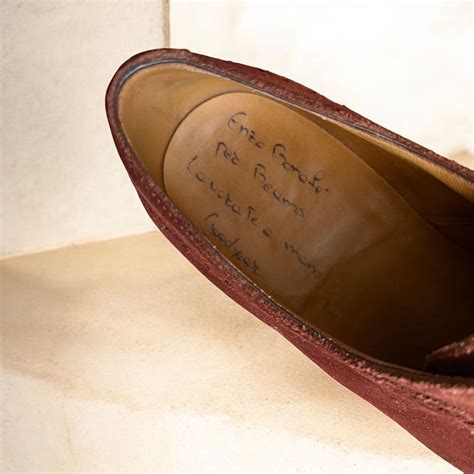 Enzo Bonafé
per Beams
Lavorate a mano
Goodyear